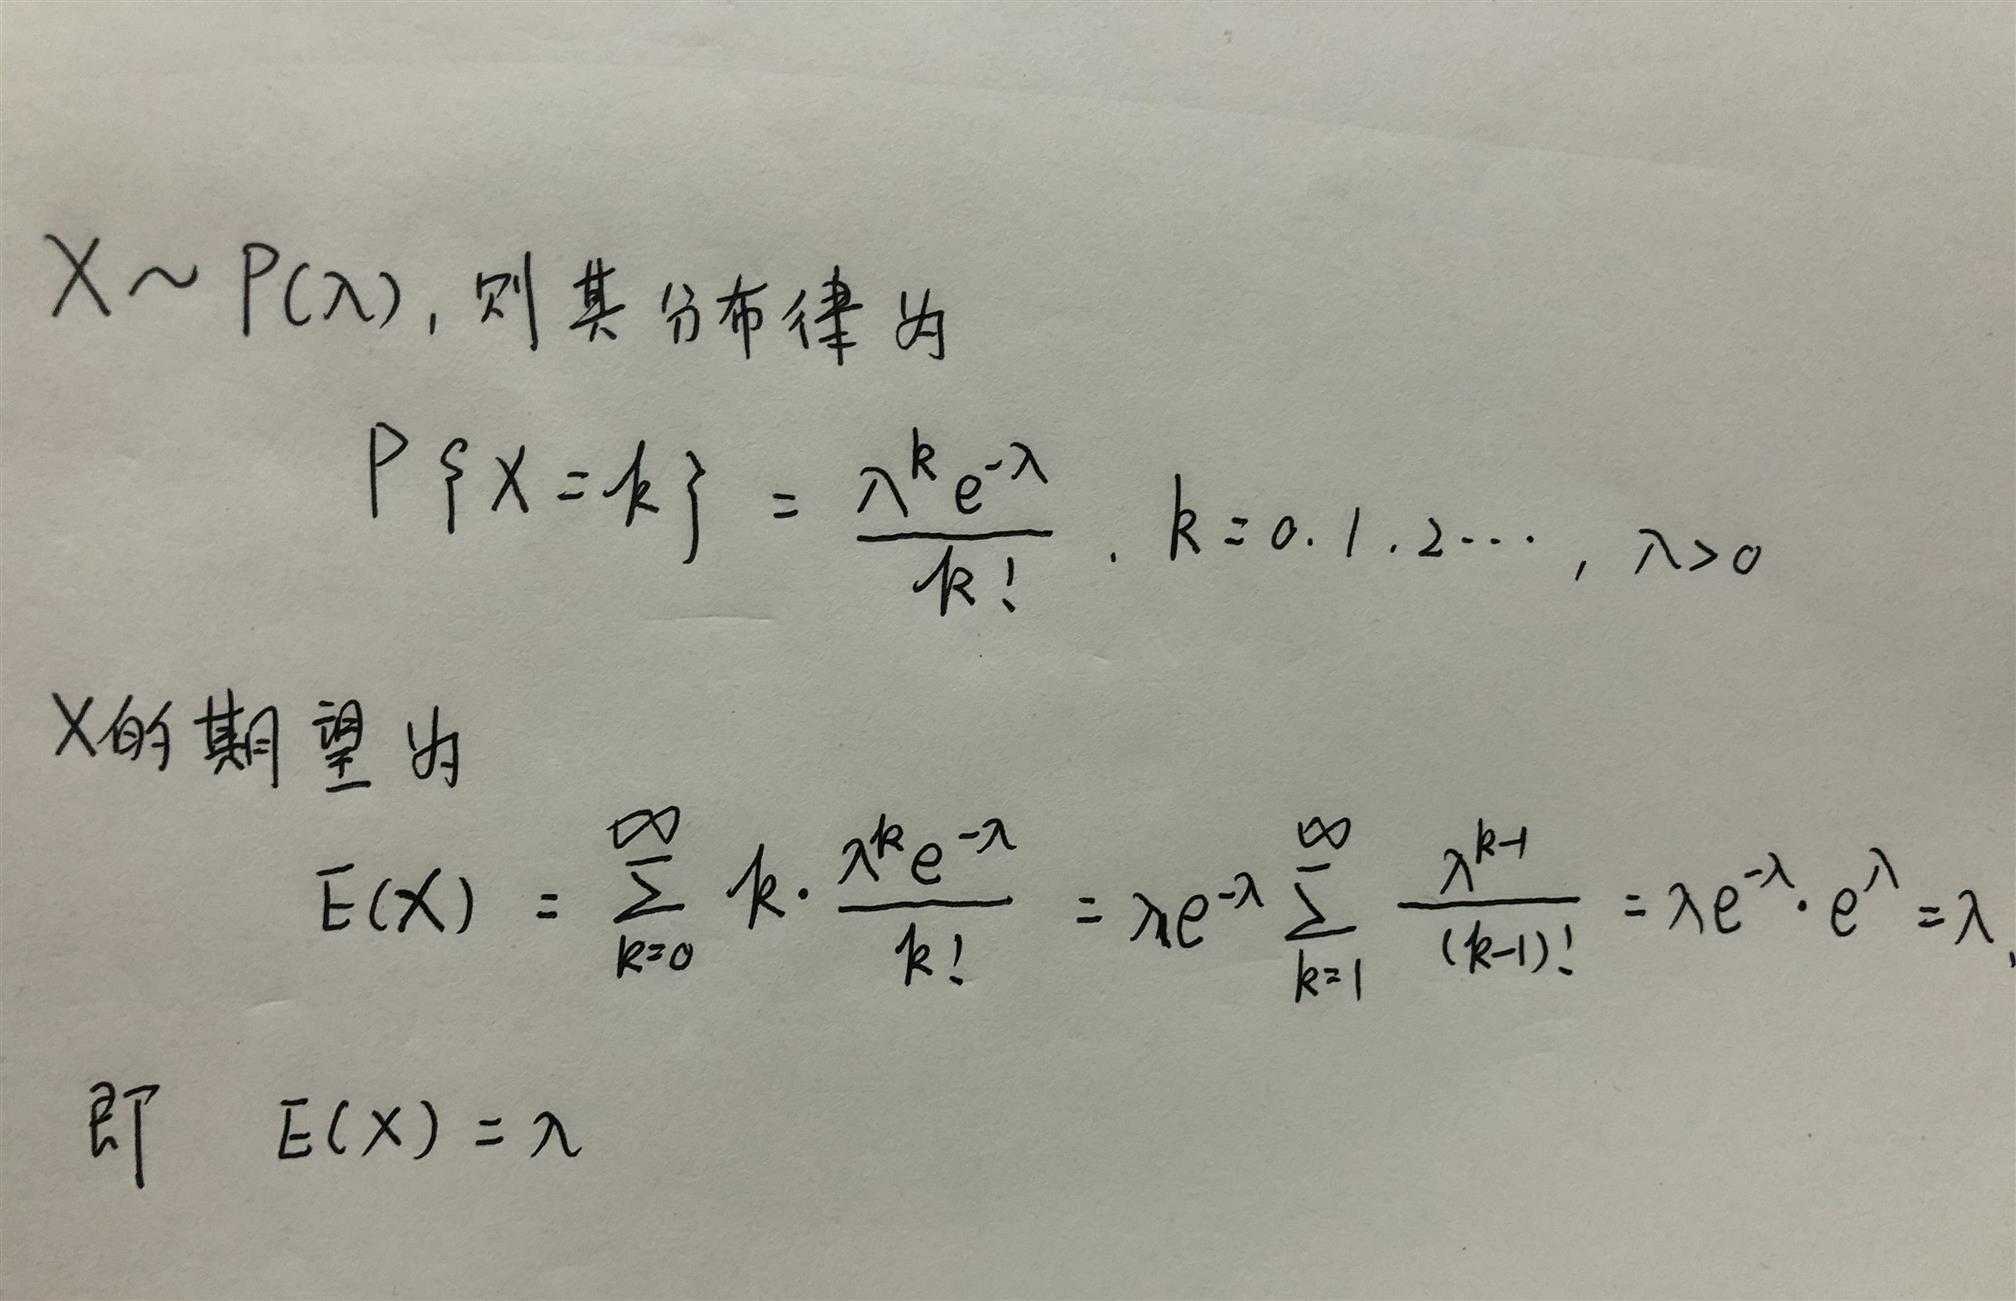 X ~ P(λ), 则其分布律为
P{X=k} = \frac{λ^k e^{-λ}}{k!}. k=0.1.2⋯, λ>0
X的期望为
E(X) = \sum_{k=0}^{∞} k·\frac{λ^k e^{-λ}}{k!} = λe^{-λ} \sum_{k=1}^{∞} \frac{λ^{k-1}}{(k-1)!} = λe^{-λ}·e^{λ} = λ,
即 E(X) = λ